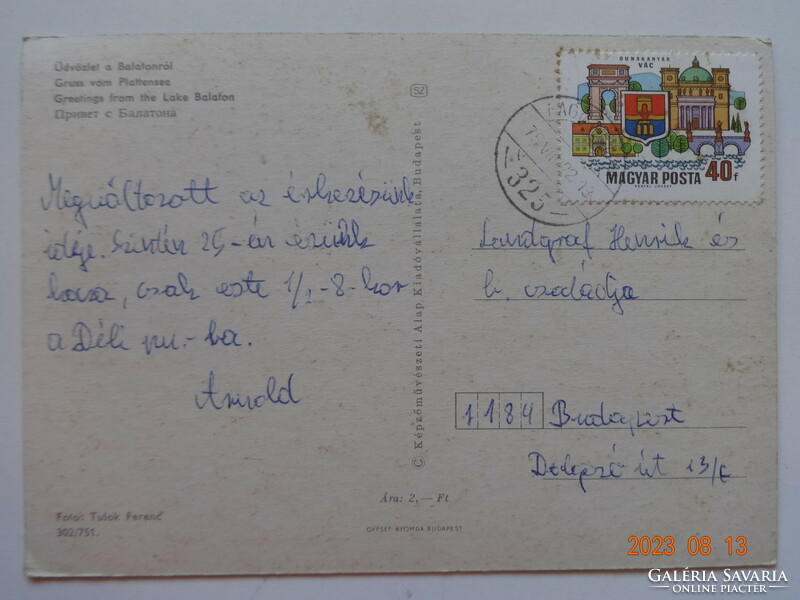 Üdvözlet a Balatonról
Gruss vom Plattensee
Greetings from the Lake Balaton
Привет с Балатона
Megváltozott az érkezésünk
ideje. Szintén 25-én érünk
haza, csak este 1/2-8-kor
a Déli pu.-ba.
Arnold
Foto: Tulok Ferenc
302/751.
© Képzőművészeti Alap Kiadóvállalata, Budapest
SZ
Ára: 2,— Ft
OFFSET-NYOMDA BUDAPEST
DUNAKANYAR
VÁC
MAGYAR POSTA 40f
325
Landgraf Henrik és
b. családja
1184 Budapest
13/c
2023 08 13
GALÉRIA SAVARIA
ONLINE PIACTÉR